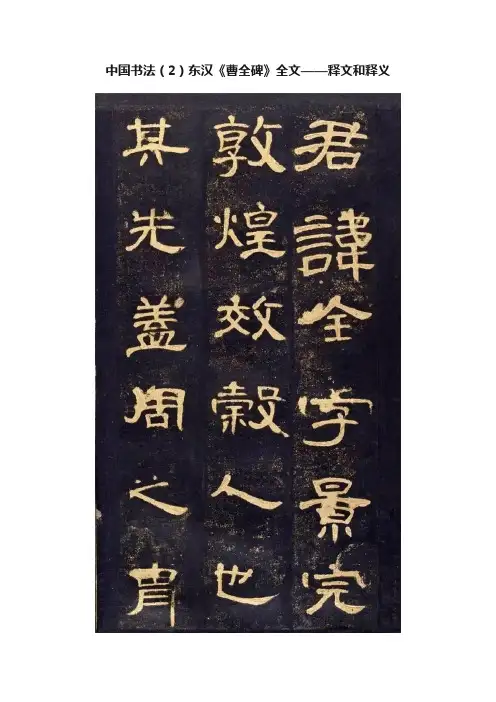 中国书法（2）东汉《曹全碑》全文——释文和释义
君諱全字景完
敦煌效穀人也
其先蓋周之胄